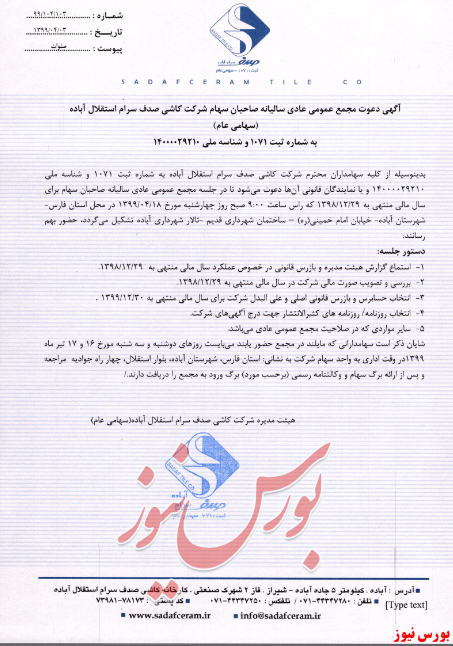 شماره : ۹۹/۱۰۴/۱۰۳
تاریخ : ۱۳۹۹/۰۴/۰۳
پیوست : سنوات
SADAFCERAM TILE CO
آگهی دعوت مجمع عمومی عادی سالیانه صاحبان سهام شرکت کاشی صدف سرام استقلال آباده
(سهامی عام)
به شماره ثبت ۱۰۷۱ و شناسه ملی ۱۴۰۰۰۰۲۹۲۱۰
بدینوسیله از کلیه سهامداران محترم شرکت کاشی صدف سرام استقلال آباده به شماره ثبت ۱۰۷۱ و شناسه ملی
۱۴۰۰۰۰۲۹۲۱۰ و یا نمایندگان قانونی آن‌ها دعوت می‌شود تا در جلسه مجمع عمومی عادی سالیانه صاحبان سهام برای
سال مالی منتهی به ۱۳۹۸/۱۲/۲۹ که راس ساعت ۹:۰۰ صبح روز چهارشنبه مورخ ۱۳۹۹/۰۴/۱۸ در محل استان فارس-
شهرستان آباده- خیابان امام خمینی(ره) – ساختمان شهرداری قدیم -تالار شهرداری آباده تشکیل می‌گردد، حضور بهم
رسانند:
دستور جلسه:
۱- استماع گزارش هیئت مدیره و بازرس قانونی در خصوص عملکرد سال مالی منتهی به ۱۳۹۸/۱۲/۲۹.
۲- بررسی و تصویب صورت مالی شرکت در سال مالی منتهی به ۱۳۹۸/۱۲/۲۹.
۳- انتخاب حسابرس و بازرس قانونی اصلی و علی البدل شرکت برای سال مالی منتهی به ۱۳۹۹/۱۲/۳۰ .
۴- انتخاب روزنامه/ روزنامه های کثیرالانتشار جهت درج آگهی‌های شرکت.
۵- سایر مواردی که در صلاحیت مجمع عمومی عادی می‌باشد.
شایان ذکر است سهامدارانی که مایلند در مجمع حضور یابند می‌بایست روزهای دوشنبه و سه شنبه مورخ ۱۶ و ۱۷ تیر ماه
۱۳۹۹در وقت اداری به واحد سهام شرکت به نشانی: استان فارس، شهرستان آباده، بلوار استقلال، چهار راه جوادیه مراجعه
و پس از ارائه برگ سهام و وکالتنامه رسمی (برحسب مورد) برگ ورود به مجمع را دریافت دارند./
هیئت مدیره شرکت کاشی صدف سرام استقلال آباده(سهامی عام)
بورس نیوز
آدرس : آباده . کیلومتر ۵ جاده آباده - شیراز . فاز ۲ شهرک صنعتی . کارخانه کاشی صدف سرام استقلال آباده
تلفن : ۰۷۱-۴۴۳۴۷۲۸۰ / تلفکس : ۰۷۱-۴۴۳۴۷۲۵۰ کد پستی : ۷۳۹۸۱-۷۸۱۷۳
[Type text]
www.sadafceram.ir info@sadafceram.ir
بورس نیوز